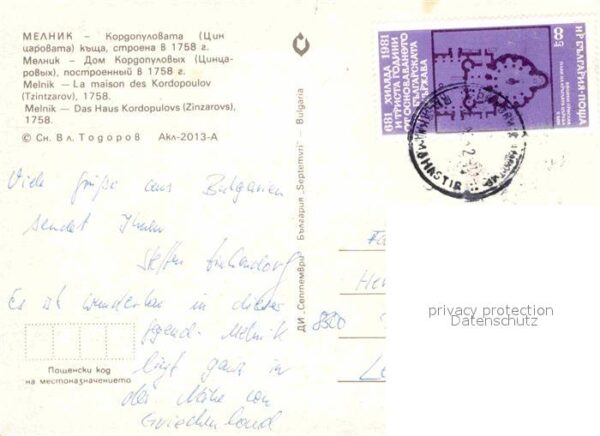 МЕЛНИК — Кордопуловата (Цин
царовата) къща, строена в 1758 г.
Мелник — Дом Кордопуловых (Цинца-
ровых), построенный в 1758 г.
Melnik — La maison des Kordopoulov
(Tzintzarov), 1758.
Melnik — Das Haus Kordopulovs (Zinzarovs),
1758.
© Сн. Вл. Тодоров Акл-2013-А
Viele Grüße aus Bulgarien
sendet Ihnen
Steffen
Es ist wunderbar in dieser
Gegend. Melnik
liegt ganz in
der Nähe von
Griechenland
Пощенски код
на местоназначението
ДИ „Септември" България „Septemvri" Bulgaria
681 ХИЛЯДА 1981
И ТРИСТА ГОДИНИ
ОТ ОСНОВАВАНЕТО
НА БЪЛГАРСКАТА
ДЪРЖАВА
НР БЪЛГАРИЯ·ПОЩА
8
MONASTIR
privacy protection
Datenschutz